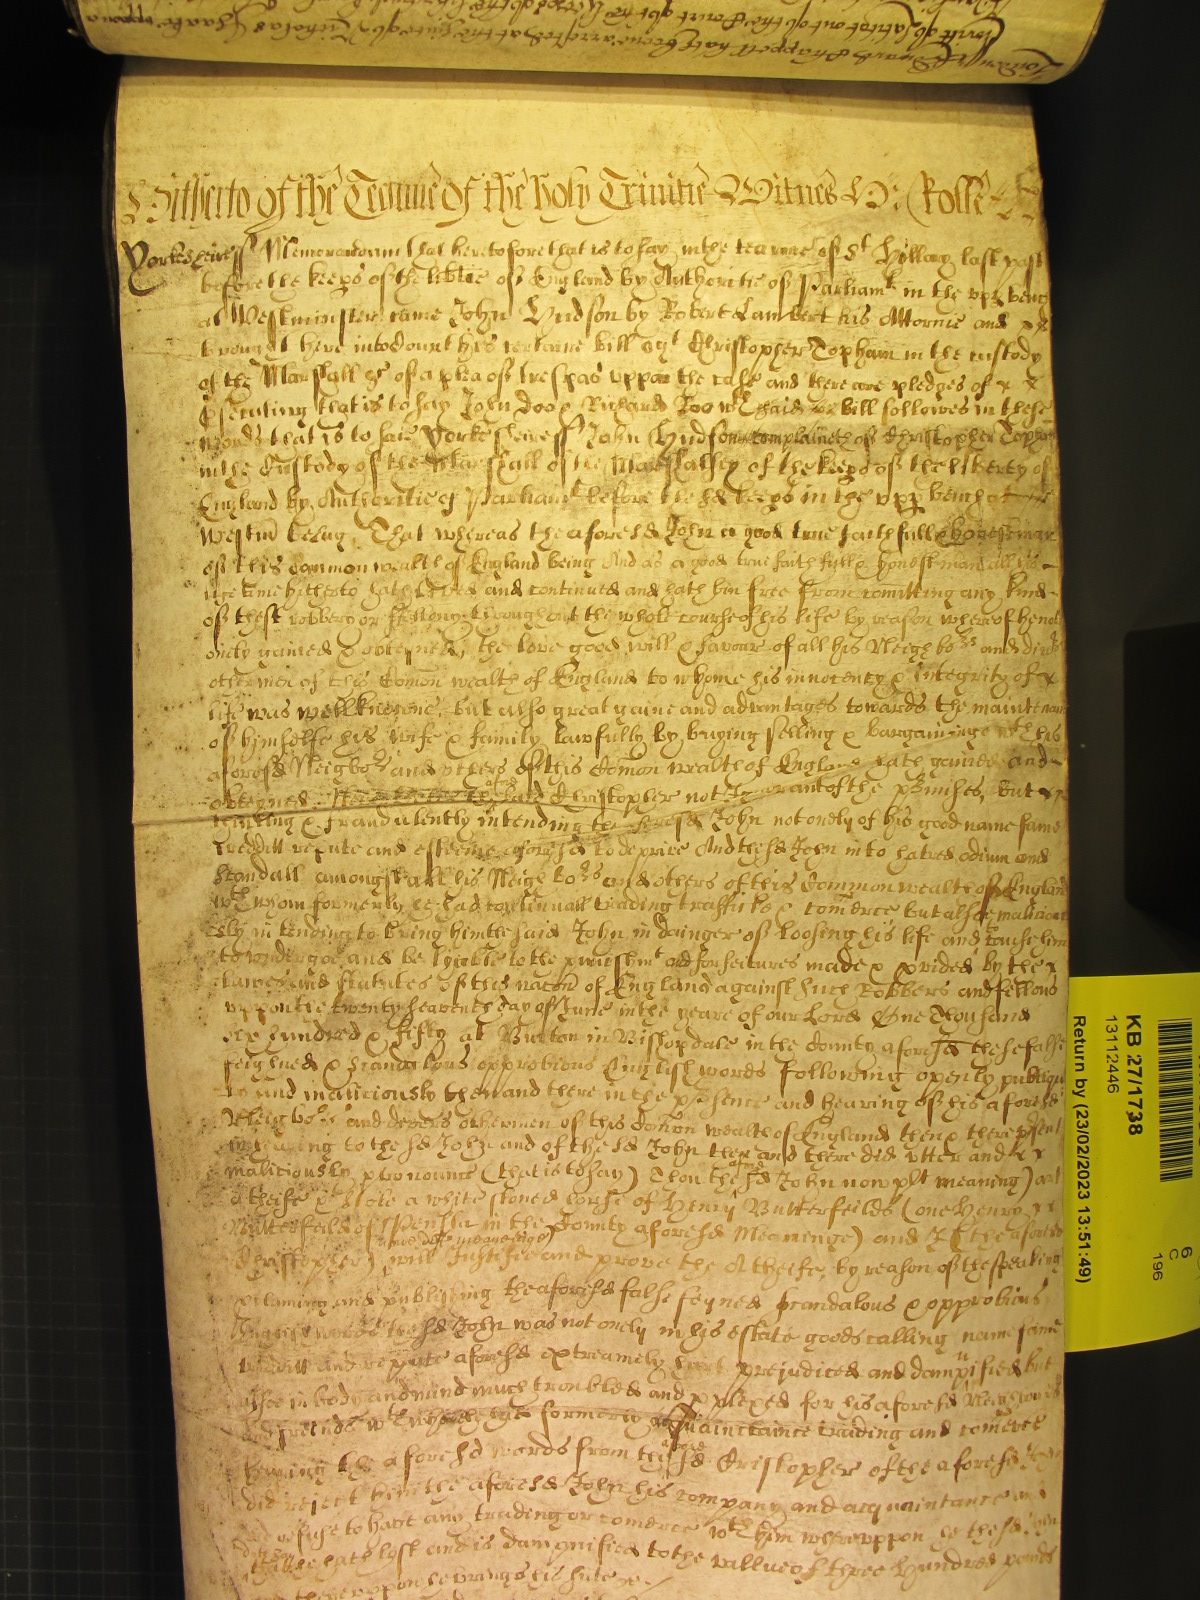 Hitherto of the Tearme of the holy Trinitie Witnes H: Rolle
Yorkesheire ss Memorandum that heretofore that is to say in the tearme of St Hillary last past
before the keeps of the libtie of England by Authoritie of Parliamt in the upp bench
at Westminster came John Hudson by Robert Lambert his Attornie and
brought here into Court his certaine bill agt Christopher Topham in the custody
of the Marshall &c of a plea of trespas uppon the case and there are pledges of
psecuting that is to say John Doo & Richard Roo wch said bill followes in these
words that is to saie Yorkesheire ss John Hudson complaineth of Christopher Topham
in the Custody of the Marshall of the Marshalsey of the keeps of the liberty of
England by Authoritie of Parliamt before the sd keeps in the upp bench at
Westm being That whereas the aforesd John a good true faithfull & honest man
of this Common wealth of England being And as a good true faithfull & honest man all his
life time hitherto hath lived and continued and hath bin free from comitting any kind
of theft robbery or fellony throughout the whole course of his life by reason whereof he not
onely gained & obteyned the love good will & favour of all his Neighbors and divers
other men of this Comon wealth of England to whome his innocency & integrity of
life was well knowne, but also great gaine and advantages towards the maintenance
of himselfe his wife & family lawfully by buying selling & bargaininge wth his
aforesd Neighbors and others of this Comon wealth of England hath gained and
obteyned Christopher not Ignorant of the pmisses, but
& fraudulently intending the aforesd John not onely of his good name fame
creditt repute and esteeme aforesd to deprive And the sd John into hatred odium and
Scandall amongst all his Neighbors and others of this Common wealth of England
wth whom formerly he had continuall trading traffike & comerce but also malicious
sly intending to bring him the said John in dainger of loosing his life and cause him
to undergoe and be lyable to the punishmt and forfeitures made & pvided by the
lawes and statutes of this nacon of England against such Robbers and fellons
uppon the twenty seaventh day of June in the yeare of our Lord One Thousand
six hundred & fifty at Burton in Bissopdale in the County aforesd these false
feighned & scandalous opprobious English words following openly publiqu
ly and maliciously then and there in the psence and hearing of his aforesd
Neighbors and divers other men of this Comon wealth of England then & there psent
to the sd John and of the sd John then and there did utter and
maliciously pronounce (that is to say) Thou (the aforesd John now plt meaning) art
a theife & stole a white stoned horse of Henry Butterfeilds (one Henry
Butterfeild of in the County aforesd Meaninge) and I (the aforesd
Christopher now deft meaninge) will Justifie and prove the A theife by reason of the speaking
and publishing the aforesd false feyned scandalous & opprobious
English words the sd John was not onely in his estate goods calling name fame
creditt and repute aforesd extreamely hurt prejudiced and dampnified but
alsoe in body and mind much troubled and pplexed for his aforesd Neighbours
and freinds wth whom he had formerly acquaintance trading and comerce
hearing the aforesd words from the aforesd Cristopher of the aforesd John
did reject him the aforesd John his company and acquaintance and
did refuse to have any trading or comerce wth him whereuppon he the sd John
saith he hath lost and is dampnified to the vallue of three hundred pounds
And thereuppon he brings his suite &c.
KB 27/1738
13112446
Return by (23/02/2023 13:51:49)
6
C
196